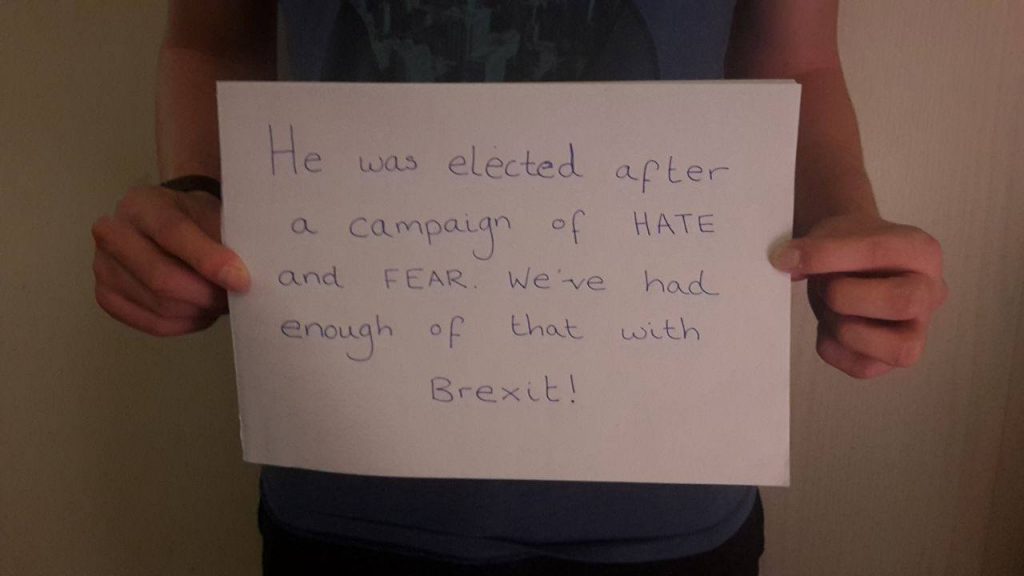 He was elected after
a campaign of HATE
and FEAR. We've had
enough of that with
Brexit!